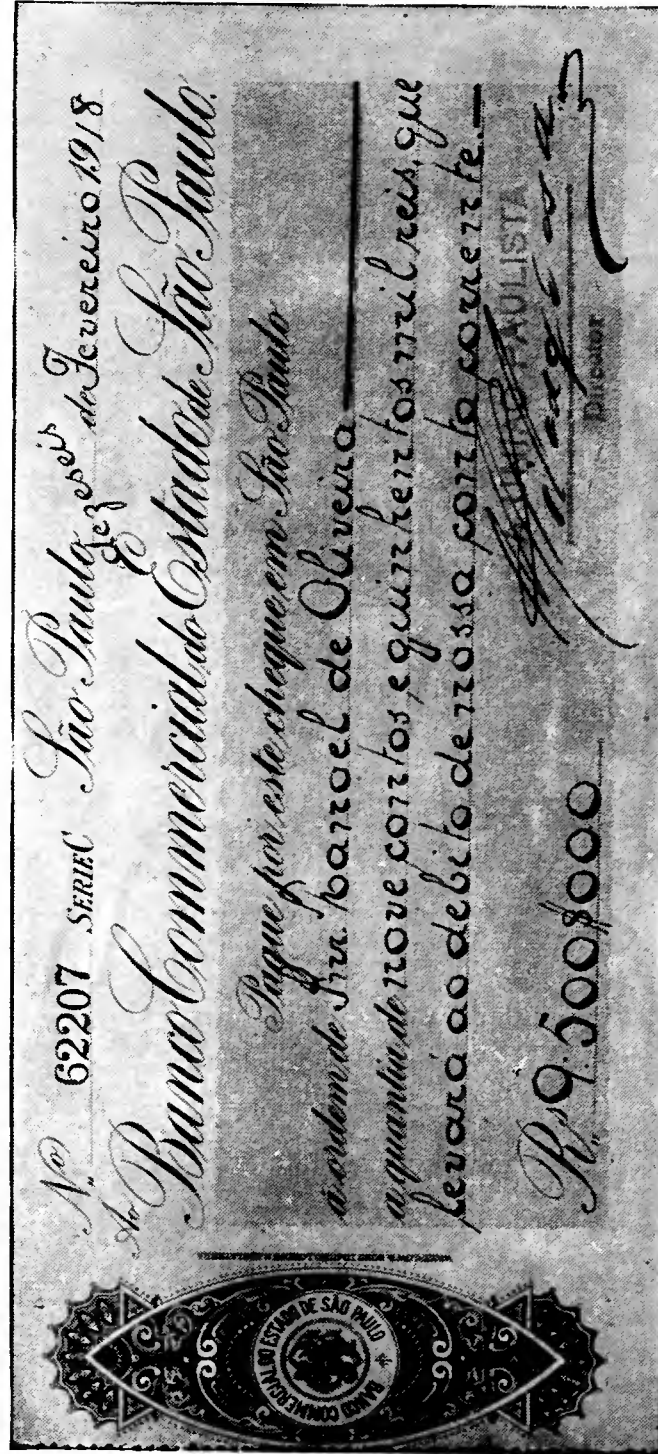 Nº 62207 SERIE C São Paulo, dezeseis de Fevereiro 1918
Ao Banco Commercial do Estado de São Paulo.
Pague por este cheque em São Paulo
á ordem de Snr. Manoel de Oliveira
a quantia de nove contos, e quinhentos mil reis, que
levará ao debito de nossa conta corrente.—
PAULISTA
Rs. 9.500$000
Director
BANCO COMMERCIAL DO ESTADO DE SÃO PAULO